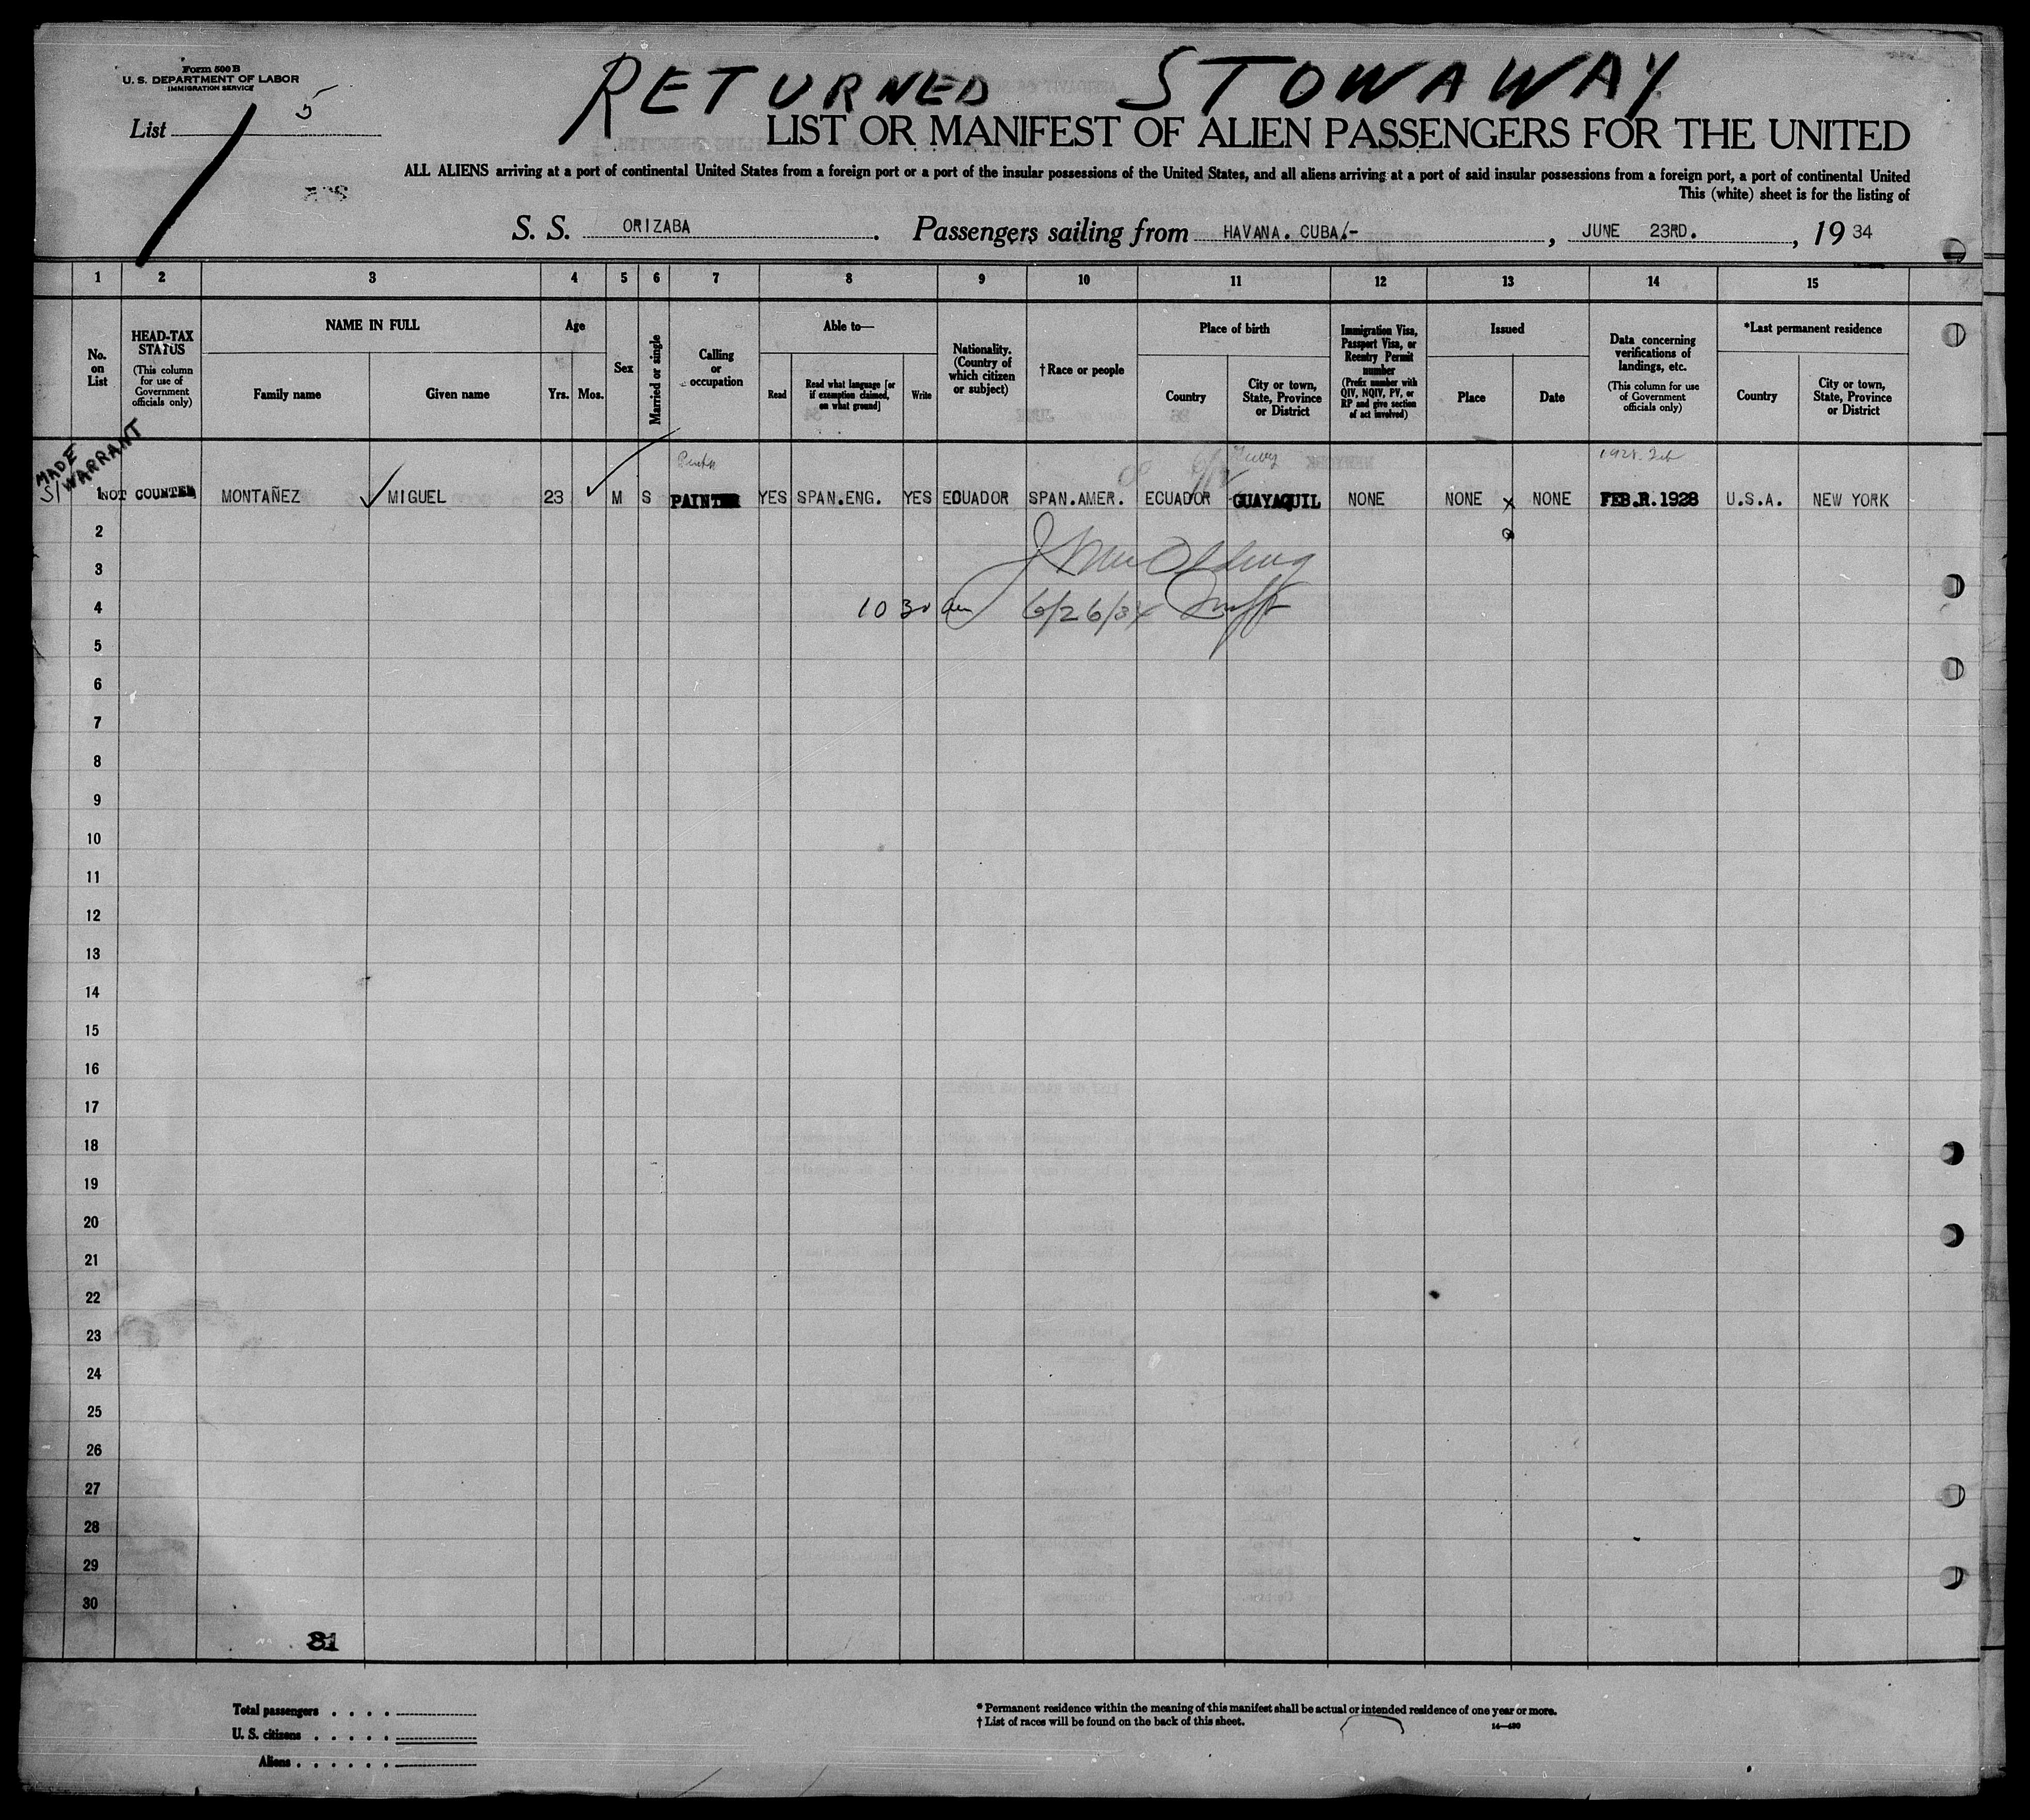 Form 500 B
U. S. DEPARTMENT OF LABOR
IMMIGRATION SERVICE
List 5
RETURNED STOWAWAY
LIST OR MANIFEST OF ALIEN PASSENGERS FOR THE UNITED
ALL ALIENS arriving at a port of continental United States from a foreign port or a port of the insular possessions of the United States, and all aliens arriving at a port of said insular possessions from a foreign port, a port of continental United
This (white) sheet is for the listing of
S. S. ORIZABA. Passengers sailing from HAVANA. CUBA.-, JUNE 23RD., 1934
1 2 3 4 5 6 7 8 9 10 11 12 13 14 15
No. on List
HEAD-TAX STATUS
(This column for use of Government officials only)
NAME IN FULL
Family name Given name
Age
Yrs. Mos.
Sex
Married or single
Calling or occupation
Able to—
Read
Read what language [or if exemption claimed, on what ground]
Write
Nationality. (Country of which citizen or subject)
†Race or people
Place of birth
Country
City or town, State, Province or District
Immigration Visa, Passport Visa, or Reentry Permit number
(Prefix number with QIV, NQIV, PV, or RP and give section of act involved)
Issued
Place Date
Data concerning verifications of landings, etc.
(This column for use of Government officials only)
*Last permanent residence
Country
City or town, State, Province or District
MADE
S/ WARRANT
1928 Feb
1 NOT COUNTED MONTAÑEZ MIGUEL 23 M S PAINTER YES SPAN.ENG. YES ECUADOR SPAN.AMER. ECUADOR GUAYAQUIL NONE NONE x NONE FEB.R.1928 U.S.A. NEW YORK
2
3
4 10 30 am 6/26/34
5
6
7
8
9
10
11
12
13
14
15
16
17
18
19
20
21
22
23
24
25
26
27
28
29
30
31
Total passengers
U. S. citizens
Aliens
* Permanent residence within the meaning of this manifest shall be actual or intended residence of one year or more.
† List of races will be found on the back of this sheet.
14—430